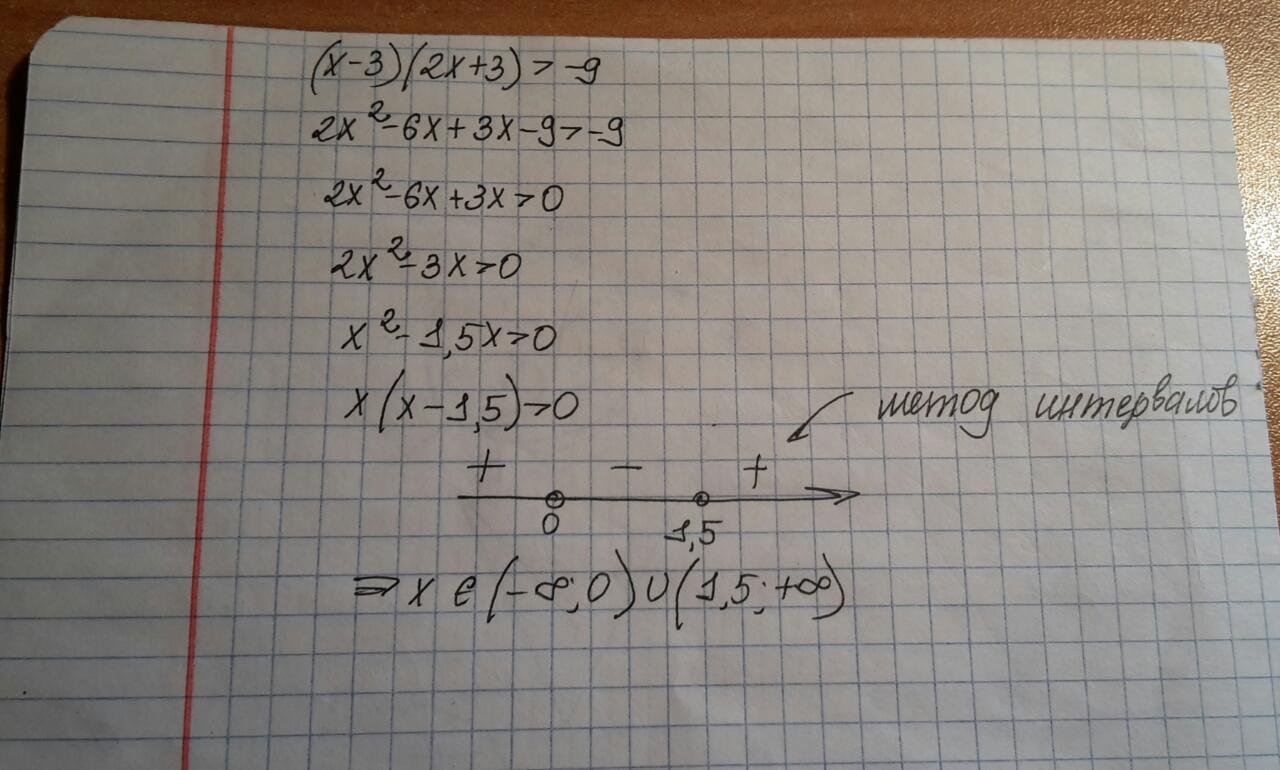 (x-3)(2x+3)>-9
2x²-6x+3x-9>-9
2x²-6x+3x>0
2x²-3x>0
x²-1,5x>0
x(x-1,5)>0
метод интервалов
+ - +
0 1,5
⇒ x ∈ (-∞;0)∪(1,5;+∞)